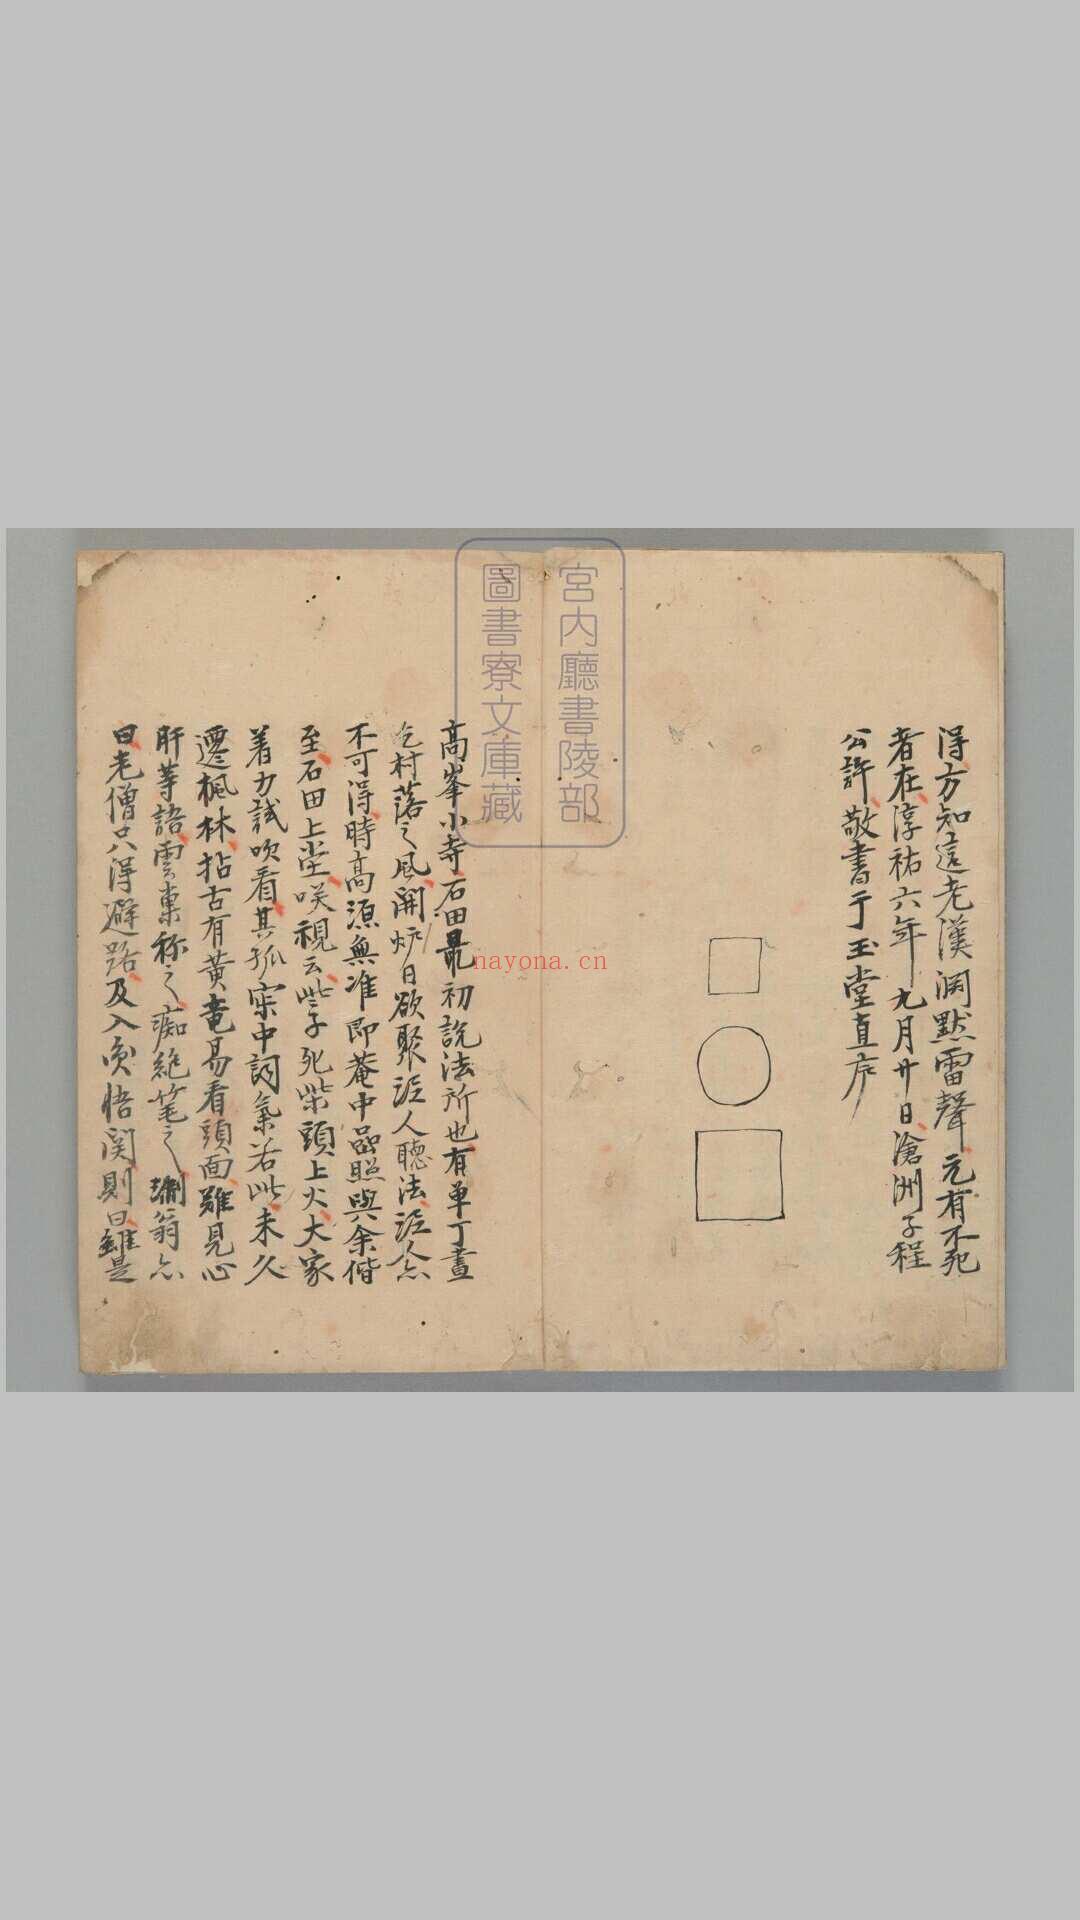 得方知這老漢淵默雷聲元有不死
者在淳祐六年九月廿日滄洲子程
公許敬書于玉堂直序
高峯小寺石田最初說法所也有單丁畫
吃村落之風開炉日欲聚泥人聽法泥人亦
不可得時高源無准即菴中嵓照與余偕
至石田上堂咲視云些子死柴頭上火大家
着力試吹看其孤寂中詞氣若此未久
遷楓林拈古有黄竜易看頭面難見心
肝等語雲巢称之痴絶笔之
翁亦
曰老僧只得避路及入
悟関則曰雖是
宮内廳書陵部
圖書寮文庫藏
nayona.cn